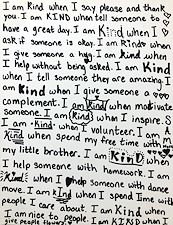 I am Kind when I say please and thank
you. I am KIND when I tell someone to
have a great day. I am Kind when I
ask if someone is okay. I am Kind when
I give someone a hug. I am kind when
I help without being asked. I am Kind
when I tell someone they are amazing. I
am Kind when I give someone a
compliment. I am Kind when I motivate
someone. I am Kind when I inspire. I
am Kind when I volunteer. I am
Kind when I spend my free time with
my little brother. I am Kind when
I help someone with homework. I am
Kind when I help someone with dance
move. I am Kind when I spend time with
people I care about. I am Kind when
I am nice to people. I am KIND when I
give people flowers.